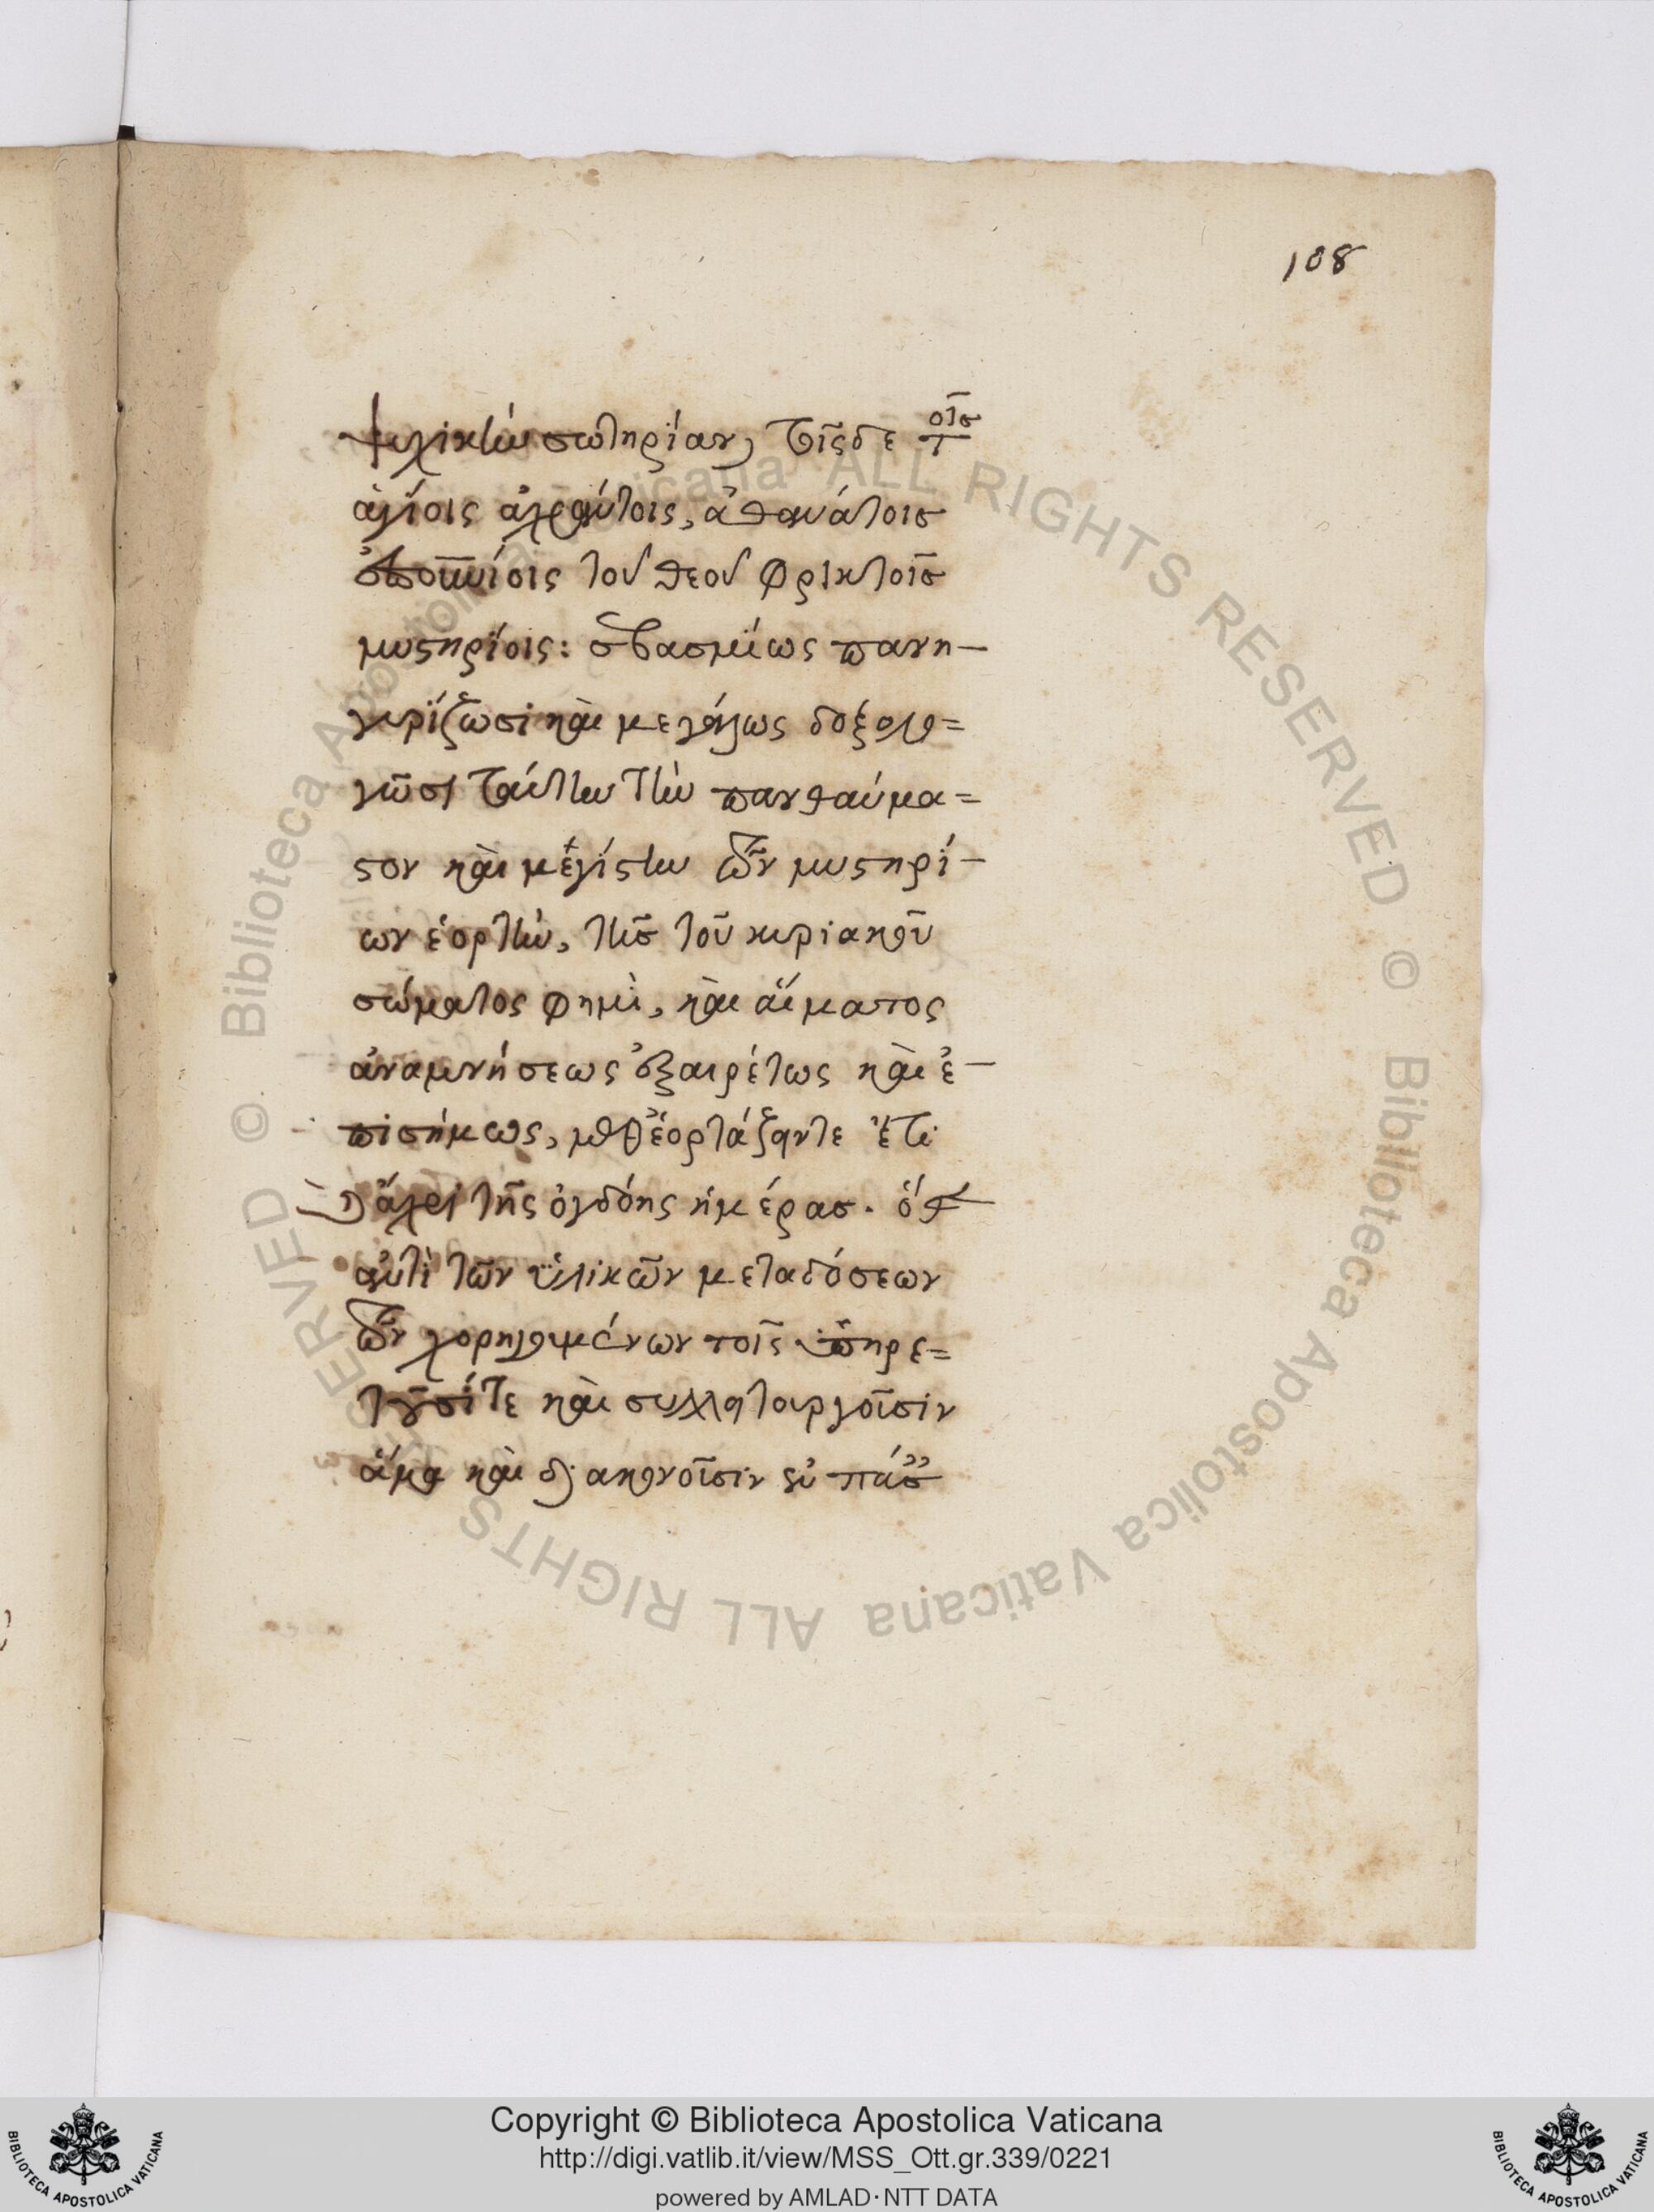 108
ψυχικὴν σωτηρίαν, τοῖς δε τοῖς
ἁγίοις ἀχράντοις, ἀθανάτοις
ἐπουρανίοις τοῦ θεοῦ φρικτοῖς
μυστηρίοις: σεβασμίως πανη-
γυρίζωσι καὶ μεγάλως δοξολο=
γῶσι ταύτην τὴν πανθαύμα=
στον καὶ μεγίστην τῶν μυστηρί-
ων ἑορτὴν, τῆς τοῦ κυριακοῦ
σώματος φημὶ, καὶ αἵματος
ἀναμνήσεως ἐξαιρέτως καὶ ἐ-
πισήμως, ἑορτάζονται ἔτι
ἄχρι τῆς ὀγδόης ἡμέρας.
ἀντὶ τῶν ὑλικῶν μεταδόσεων
τῶν χορηγουμένων τοῖς ὑπηρε=
τοῦσί τε καὶ συλλειτουργοῦσιν
ἅμα καὶ διακονοῦσιν ἐν
Biblioteca Apostolica Vaticana ALL RIGHTS RESERVED © Biblioteca Apostolica Vaticana ALL RIGHTS RESERVED ©
Copyright © Biblioteca Apostolica Vaticana
http://digi.vatlib.it/view/MSS_Ott.gr.339/0221
powered by AMLAD·NTT DATA
BIBLIOTECA APOSTOLICA VATICANA
BIBLIOTECA APOSTOLICA VATICANA